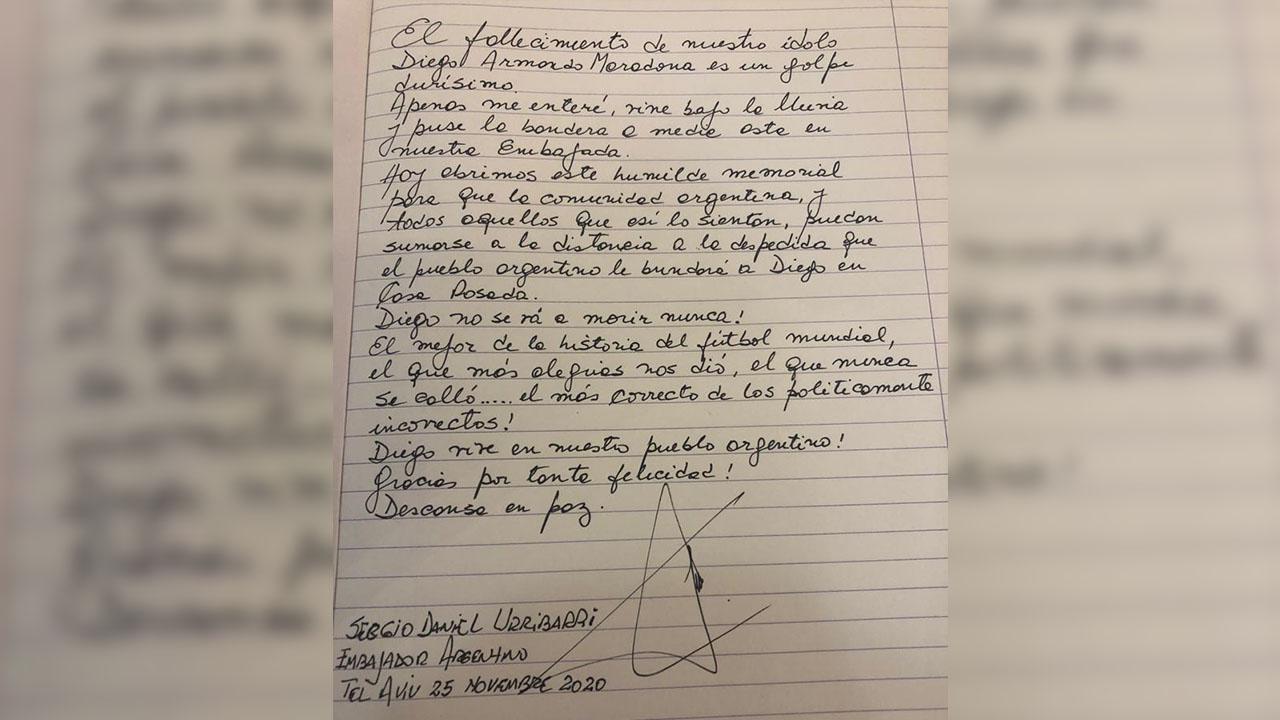 El fallecimiento de nuestro ídolo
Diego Armando Maradona es un golpe
durísimo.
Apenas me enteré, vine bajo la lluvia
y puse la bandera a media asta en
nuestra Embajada.
Hoy abrimos este humilde memorial
para que la comunidad argentina, y
todos aquellos que así lo sientan, puedan
sumarse a la distancia a la despedida que
el pueblo argentino le bundará a Diego en
Casa Rosada.
Diego no se vá a morir nunca!
El mejor de la historia del fútbol mundial,
el que más alegrias nos dió, el que nunca
se calló..... el más correcto de los políticamente
incorrectos!
Diego vive en nuestro pueblo argentino!
Gracias por tanta felicidad!
Descansa en paz.
SERGIO DANIEL URRIBARRI
EMBAJADOR ARGENTINO
TEL AVIV 25 NOVIEMBRE 2020